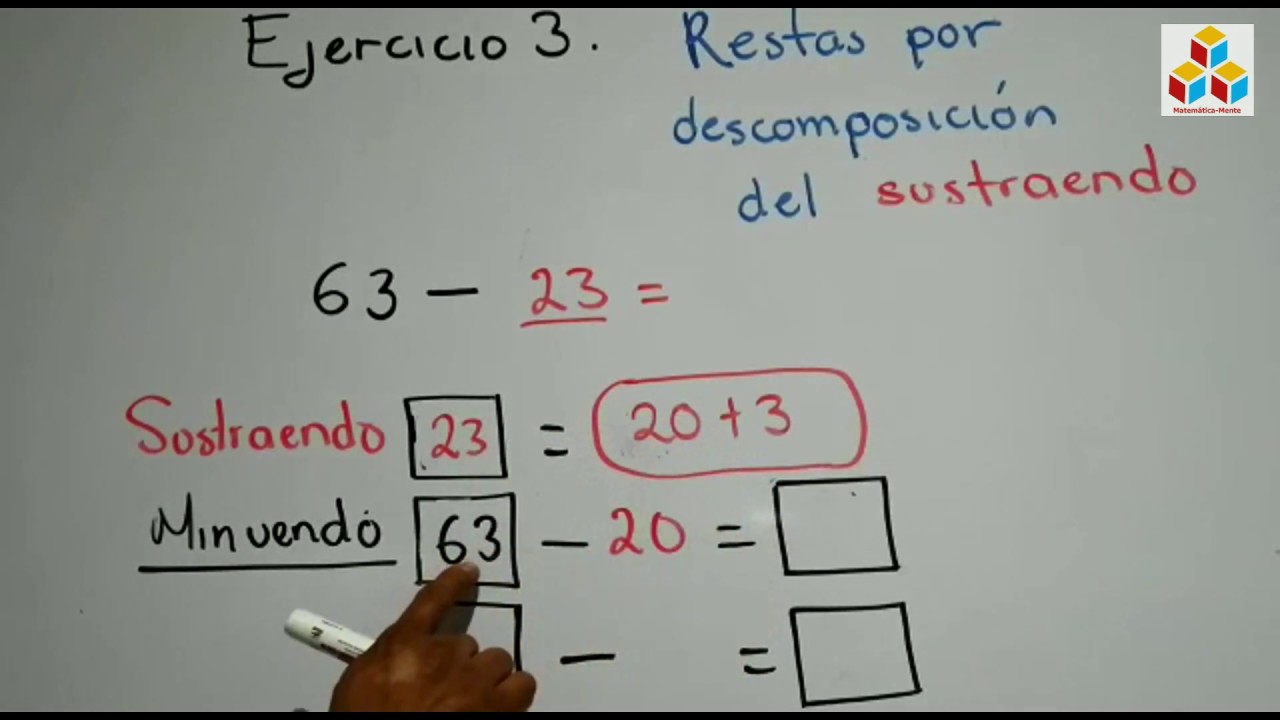 Ejercicio 3. Restas por
descomposición
del sustraendo
Matemática-Mente
63 - 23 =
Sustraendo 23 = 20 + 3
Minuendo 63 - 20 =
- =